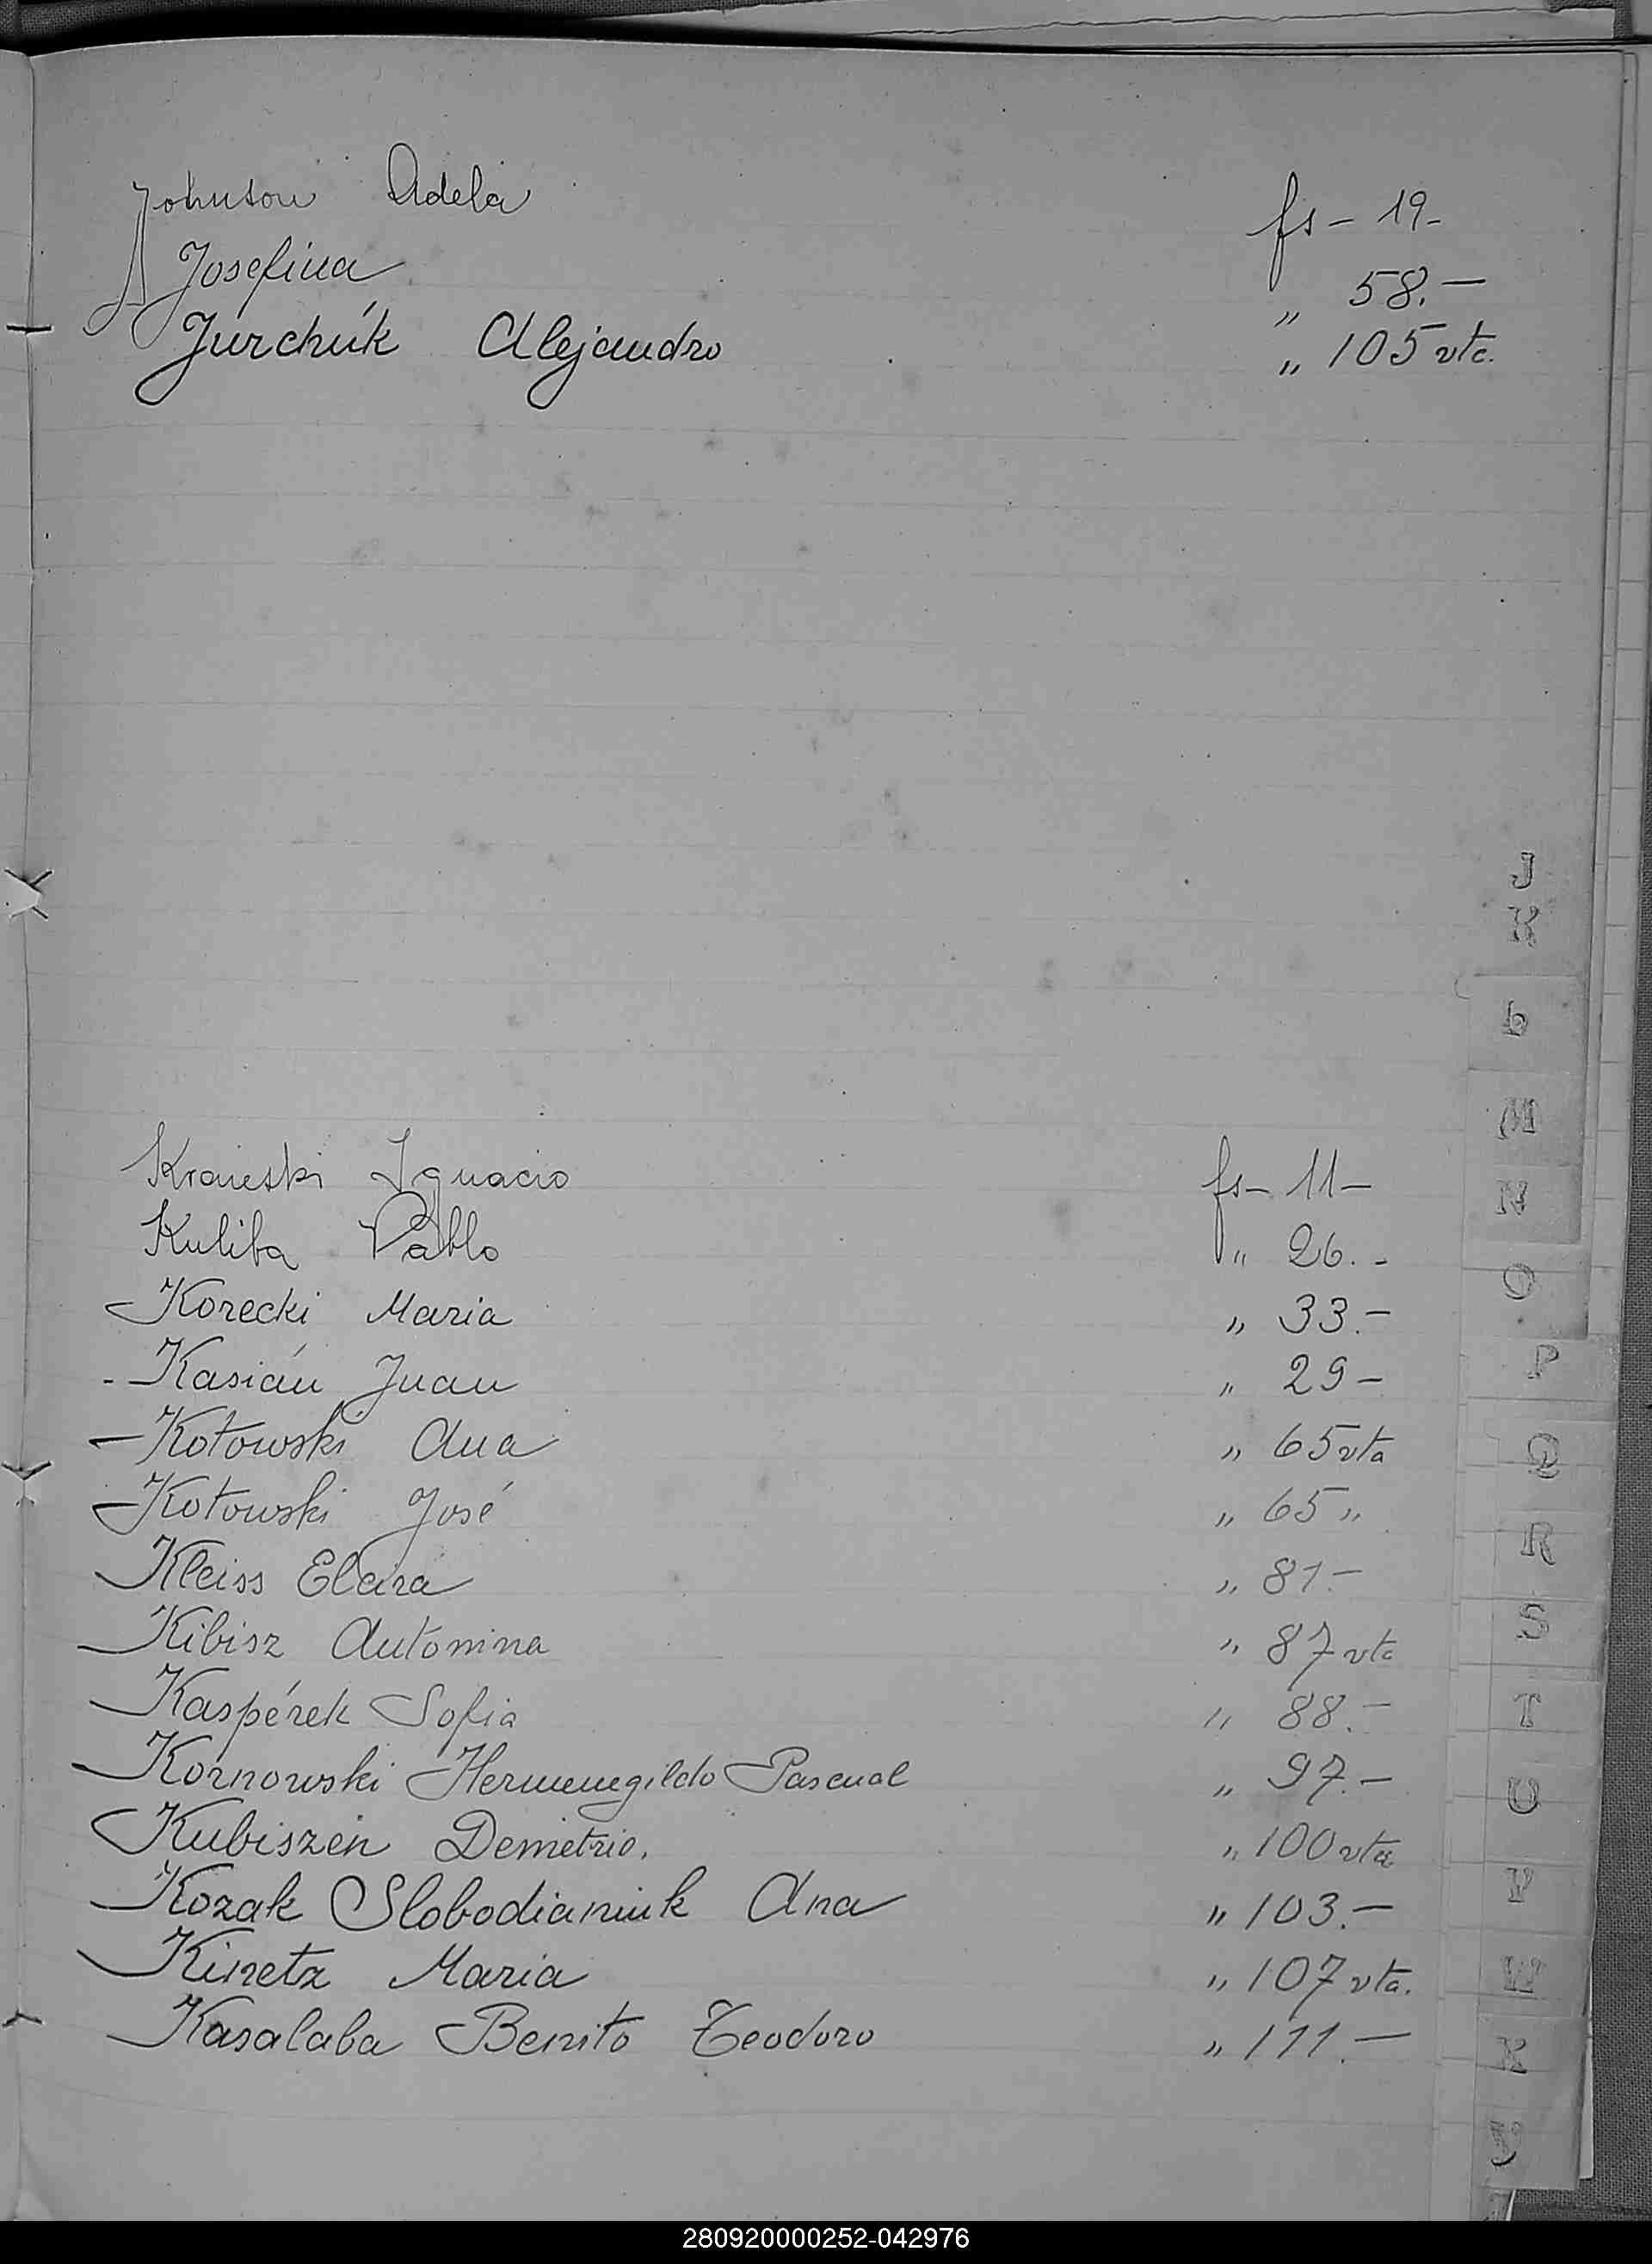 Johnson Adela fs - 19 -
Josefina " 58. -
Jurchúk Alejandro " 105 vta.
J
K
L
M
N
O
P
Q
R
S
T
U
V
W
X
Y
Kraieski Ignacio fs - 11 -
Kuliba Pablo " 26. -
Korecki Maria " 33. -
- Kasián Juan " 29 -
- Kotowski Ana " 65 vta
- Kotowski José " 65 "
Kleiss Elcira " 81. -
Kibisz Antonina " 87 vta
Kaspérek Sofia " 88. -
Kornowski Hermenegildo Pascual " 97. -
Kubiszen Demetrio. " 100 vta
Kozak Slobodianiuk Ana " 103. -
Kinetz Maria " 107 vta.
Kasalaba Benito Teodoro " 111. -
280920000252-042976